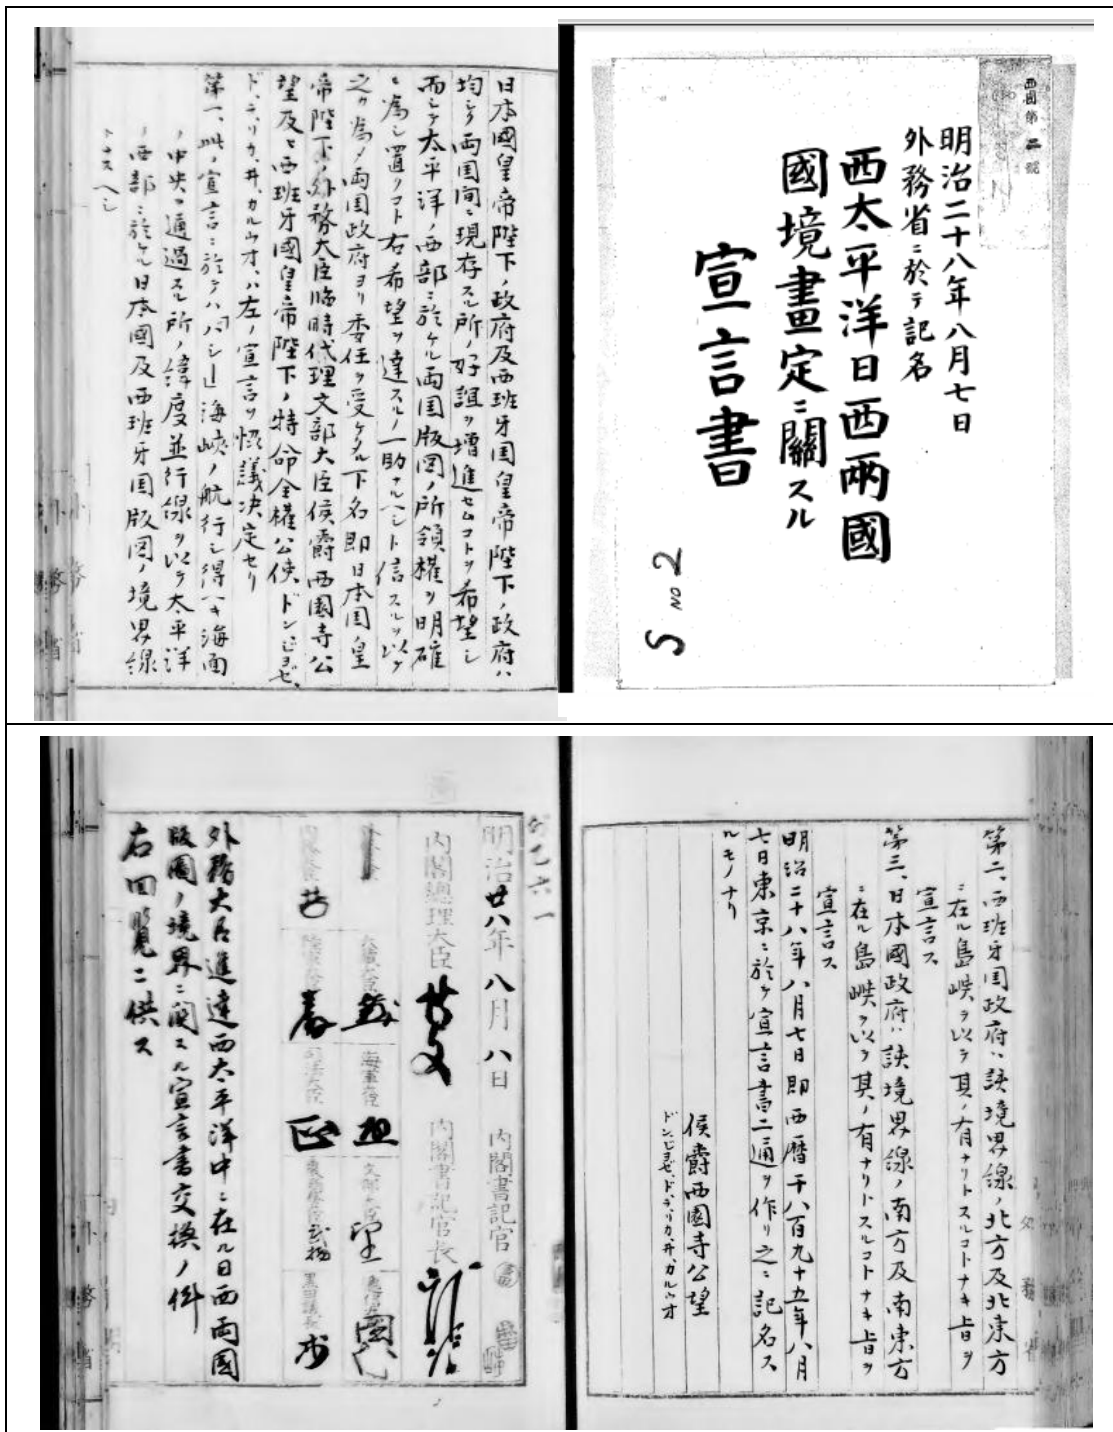 西國第二號
明治二十八年八月七日
外務省ニ於テ記名
西太平洋日西兩國
國境畫定ニ關スル
宣言書
S NO 2
日本國皇帝陛下ノ政府及西班牙国皇帝陛下ノ政府ハ
均シク両国間ニ現存スル所ノ好誼ヲ增進セムコトヲ希望シ
而シテ太平洋ノ西部ニ於ケル両国版図ノ所領權ヲ明確
ニ為シ置クコト右希望ヲ達スルノ一助ナルヘシト信スルヲ以テ
之カ為メ両国政府ヨリ委任ヲ受ケタル下名即日本国皇
帝陛下ノ外務大臣臨時代理文部大臣侯爵西園寺公
望及ヒ西班牙國皇帝陛下ノ特命全權公使ドン、ジョゼ、
ド、ラ、リカ、井、カルウオ、ハ左ノ宣言ヲ協議决定セリ
第一、此ノ宣言ニ於テハ「バシー」海峽ノ航行シ得ヘキ海面
ノ中央ヲ通過スル所ノ緯度並行線ヲ以テ太平洋
ノ西部ニ於ケル日本國及西班牙国版図ノ境界線
トナスヘシ
第二、西班牙国政府ハ該境界線ノ北方及北東方
ニ在ル島嶼ヲ以テ其ノ有ナリトスルコトナキ旨ヲ
宣言ス
第三、日本國政府ハ該境界線ノ南方及南東方
ニ在ル島嶼ヲ以テ其ノ有ナリトスルコトナキ旨ヲ
宣言ス
明治二十八年八月七日即西曆千八百九十五年八月
七日東京ニ於テ宣言書二通ヲ作リ之ニ記名ス
ルモノナリ
侯爵西園寺公望
ドン、ジョゼ、ド、ラ、リカ、井、カルウオ
明治廿八年八月八日 内閣書記官
内閣總理大臣 内閣書記官長
外務大臣進達西太平洋中ニ在ル日西両国
版圖ノ境界ニ関スル宣言書交換ノ件
右回覧ニ供ス